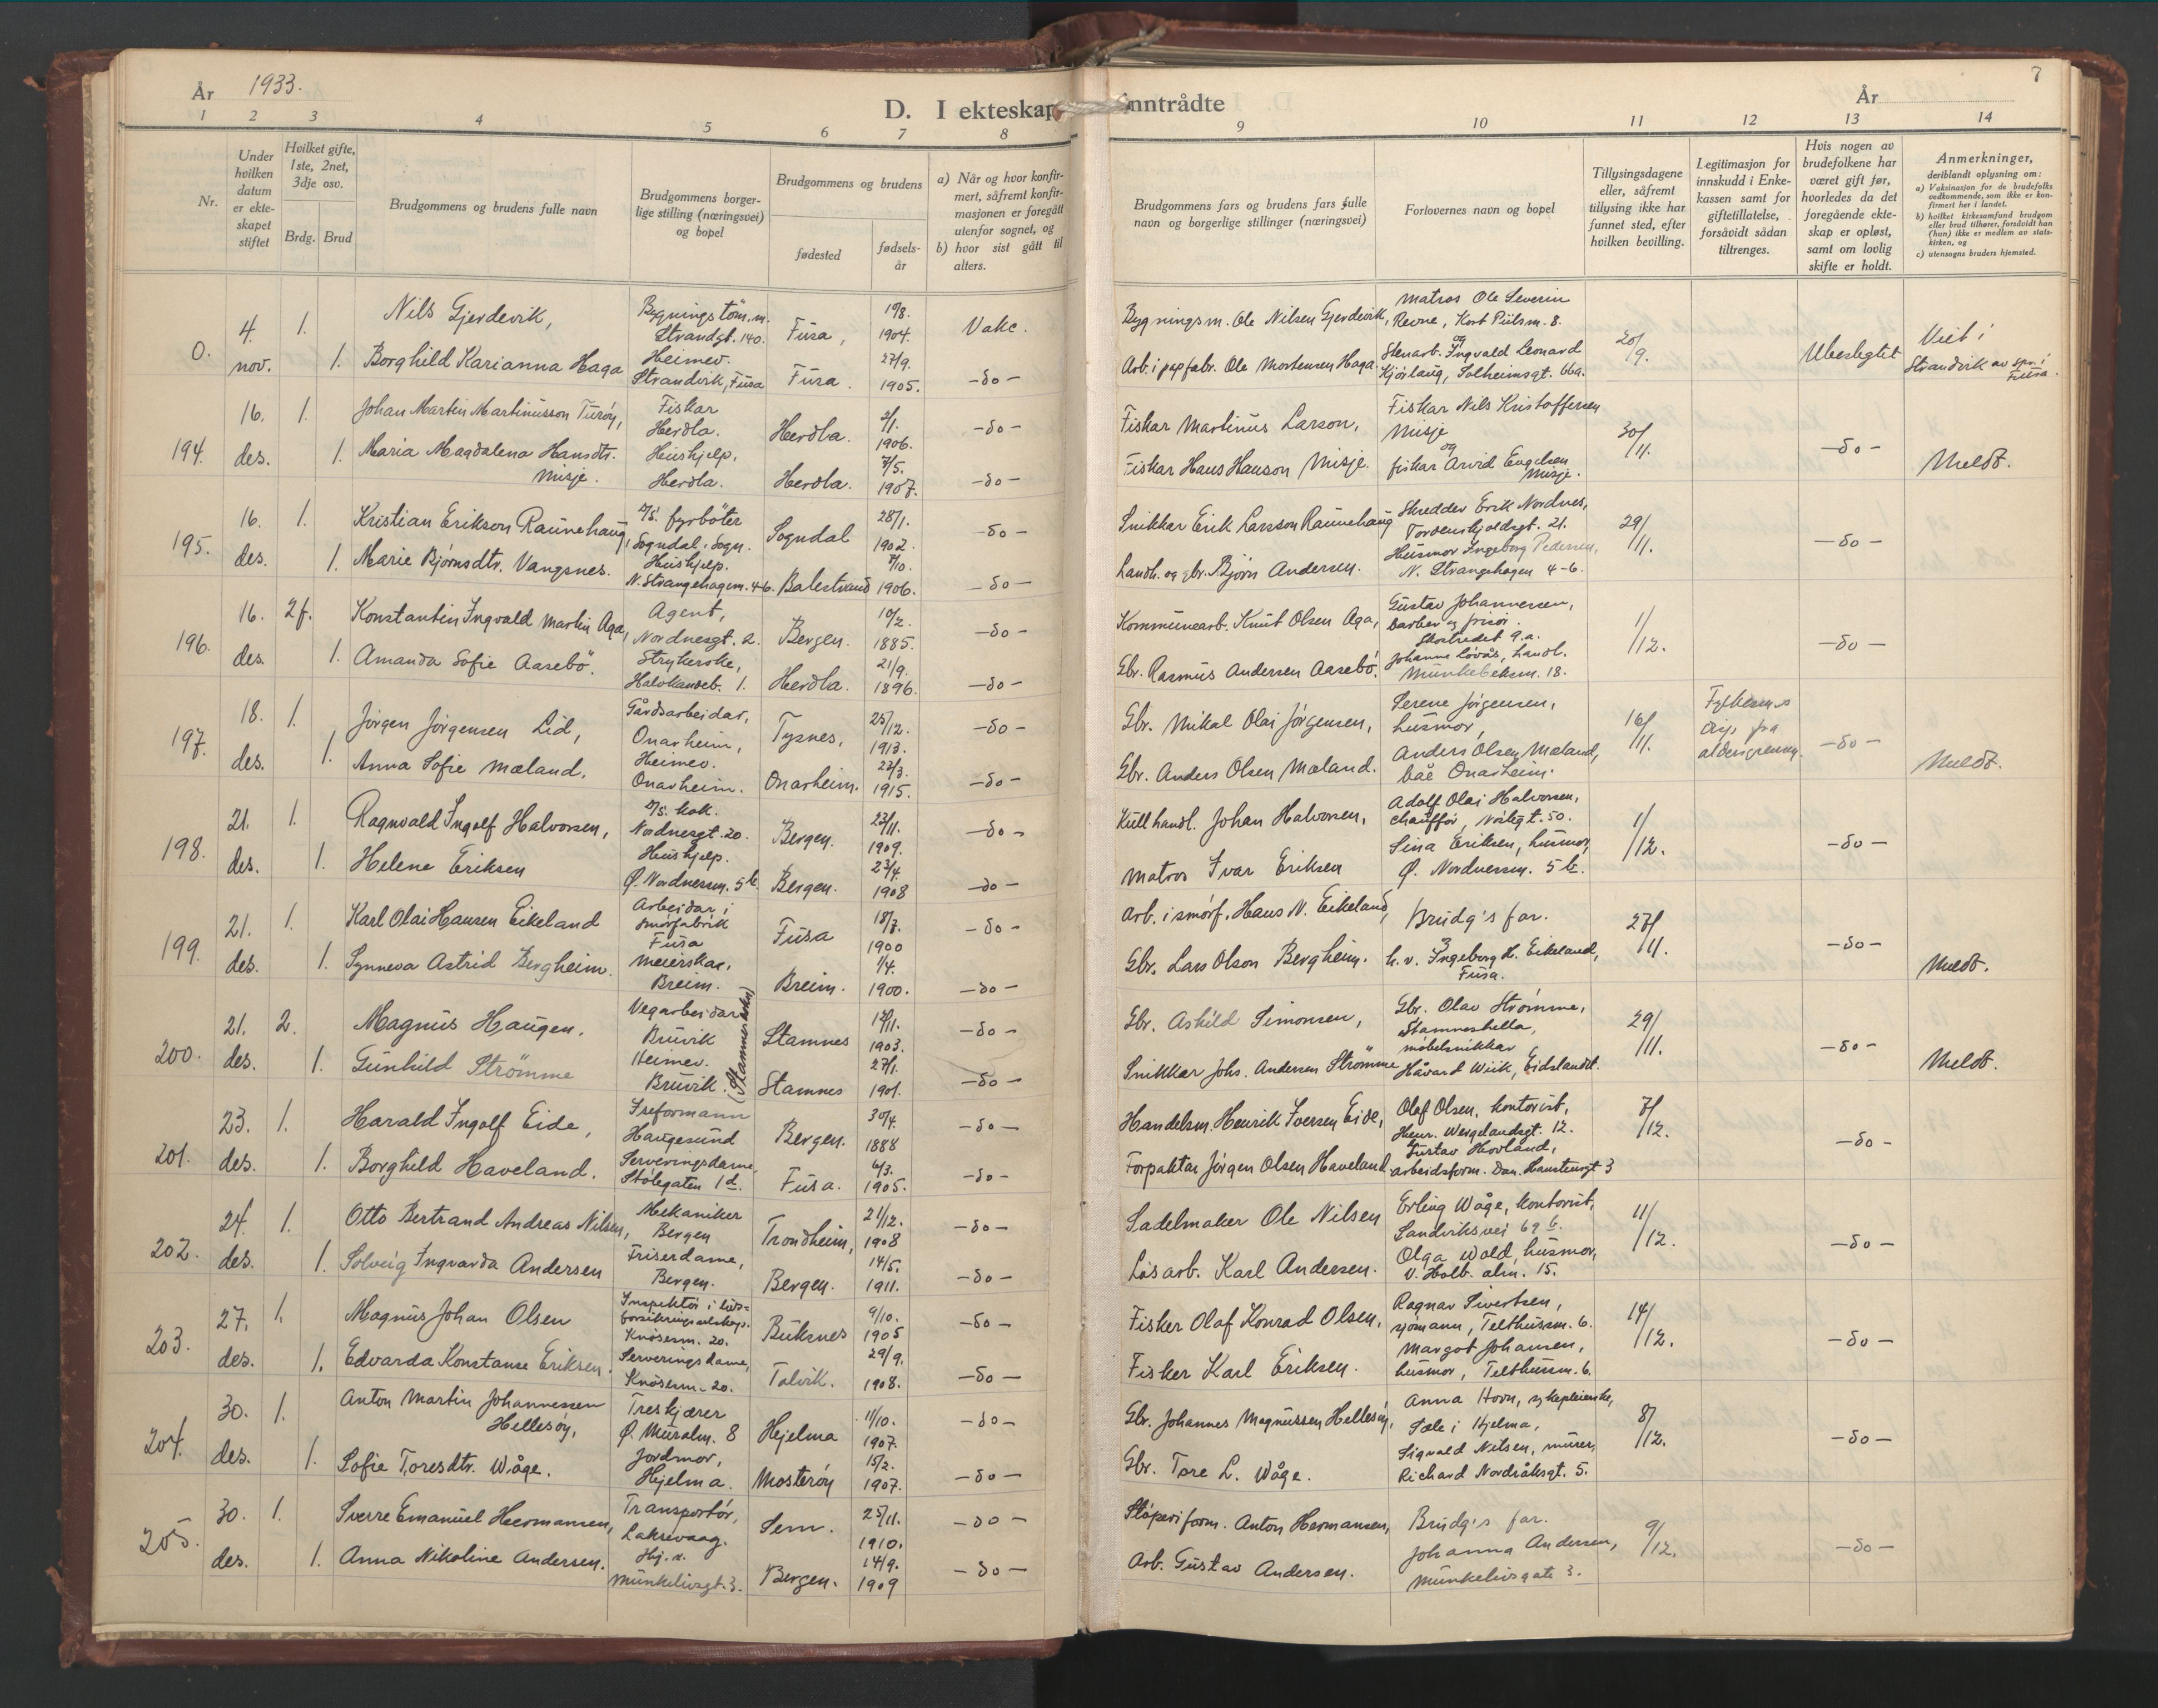 År 1933.
D. I ekteskap inntrådte
7
År
1 2 3 4 5 6 7 8 9 10 11 12 13 14
Nr.
Under hvilken datum er ekteskapet stiftet
Hvilket gifte, 1ste, 2net, 3dje osv.
Brdg. Brud
Brudgommens og brudens fulle navn
Brudgommens borgerlige stilling (næringsvei) og bopel
Brudgommens og brudens
fødested
fødselsår
a) Når og hvor konfirmert, såfremt konfirmasjonen er foregått utenfor sognet, og
b) hvor sist gått til alters.
Brudgommens fars og brudens fars fulle navn og borgerlige stillinger (næringsvei)
Forlovernes navn og bopel
Tillysingsdagene eller, såfremt tillysing ikke har funnet sted, efter hvilken bevilling.
Legitimasjon for innskudd i Enkekassen samt for giftetillatelse, forsåvidt sådan tiltrenges.
Hvis nogen av brudefolkene har været gift før, hvorledes da det foregående ekteskap er opløst, samt om lovlig skifte er holdt.
Anmerkninger, deriblandt oplysning om:
a) Vaksinasjon for de brudefolks vedkommende, som ikke er konfirmert her i landet.
b) hvilket kirkesamfund brudgom eller brud tilhører, forsåvidt han (hun) ikke er medlem av statskirken, og
c) utensogns bruders hjemsted.
0. 4. nov. 1. Nils Gjerdevik, Bygningstöm.m. Strandgt. 140. Fusa, 10/8. 1904. Vakc. Bygningsm. Ole Nilsen Gjerdevik, Matros Ole Severin Revne, Kort Piilsm. 8. 20/9. Ubeslegtet Viet i Strandvik av spr. i Fusa.
1. Borghild Karianna Haga Heimev. Strandvik, Fusa Fusa. 27/9. 1905. -do- Arb. i papfabr. Ole Mortensen Haga. og Stenarb. Ingvald Leonard Kjörlaug, Solheimsgt. 66a.
194. 16. des. 1. Johan Martin Martinusson Turöy, Fiskar Herdla. Herdla. 2/1. 1906. -do- Fiskar Martinus Larson, Fiskar Nils Kristoffersen Misje 30/11. -do- Meldt.
1. Maria Magdalena Hansdtr. Misje. Hushjelp. Herdla. Herdla. 7/5. 1907. -do- Fiskar Hans Hanson Misje. og fiskar Arvid Engelsen Misje.
195. 16. des. 1. Kristian Erikson Raunehaug, D/S. fyrböter Sogndal, Sogn. Sogndal 28/1. 1902. -do- Snikkar Erik Larsson Raunehaug Skredder Erik Nordnes, Tordenskjoldsgt. 21. 29/11. -do-
1. Marie Bjørnsdtr. Vangsnes. Hushjelp. N. Strangehagen. 4-6. Balestrand 7/10. 1906. -do- Landh. og gbr. Bjørn Andersen. Husmor Ingeborg Pedersen, N. Strangehagen 4-6.
196. 16. des. 2f. Konstantin Ingvald Martin Aga, Agent, Nordnesgt. 2. Bergen. 10/2. 1885. -do- Kommunearb. Knut Olsen Aga, Gustav Johannessen, barber og frisör. Skostredet 9.a. 1/12. -do-
1. Amanda Sofie Aasebö. Strykerske, Halvkandeb. 1. Herdla. 21/9. 1896. -do- Gbr. Rasmus Andersen Aasebö. Johanne Lövås, handl. Munkebekksm. 18.
197. 18. des. 1. Jörgen Jörgensen Lid, Gårdsarbeidar, Onarheim, Tysnes, 25/12. 1913. -do- Gbr. Mikal Olai Jörgensen, Serene Jörgensen, husmor, 16/11. Fylkesm.s disp. fra aldersgrensen. -do- Meldt.
1. Anna Sofie Mæland. Heimev. Onarheim. Onarheim. 22/3. 1915. -do- Gbr. Anders Olsen Mæland. Anders Olsen Mæland, båe Onarheim.
198. 21. des. 1. Ragnvald Ingolf Halvorsen, D/S. kok. Nordnesgt. 20. Bergen. 23/11. 1909. -do- Kullhandl. Johan Halvorsen, Adolf Olai Halvorsen, chauffør, Nöstegt. 50. 1/12. -do-
1. Helene Eriksen Hushjelp. Ø. Nordnessm. 5b. Bergen. 23/4. 1908 -do- Matros Ivar Eriksen Sina Eriksen, husmor, Ø. Nordnessm. 5b.
199. 21. des. 1. Karl Olai Hansen Eikeland Arbeidar i smörfabrik Fusa Fusa 18/7. 1900 -do- Arb. i smörf. Hans N. Eikeland, Brudg's far. 27/11. -do- Meldt.
1. Synneva Astrid Bergheim. Meierska, Breim. Breim. 1/4. 1900. -do- Gbr. Lars Olson Bergheim. h.v. Ingeborg H. Eikeland, Fusa.
200. 21. des. 2. Magnus Haugen. Vegarbeidar Bruvik Stamnes 12/11. 1903. -do- Gbr. Askild Simonsen, Gbr. Olav Strömme, Stamneshella, 29/11. -do- Meldt.
1. Gunhild Strömme Heimev. Bruvik. Stamnes 27/1. 1901. -do- Snikkar Johs. Andersen Strömme møbelsnikkar Håvard Wiik, Eidslandet.
201. 23. des. 1. Harald Ingolf Eide, Isoformann Haugesund Bergen. 30/4. 1888 -do- Handelsm. Henrik Iversen Eide, Olaf Olsen, kontorist, Henr. Wergelandsgt. 12. 7/12. -do-
1. Borghild Haveland. Serveringsdame, Stölegaten 1d. Fusa. 6/3. 1905. -do- Forpaktar Jörgen Olsen Haveland Gustav Hovland, arbeidsform. Dan. Hansteensgt 3
202. 24. des. 1. Otto Bertrand Andreas Nilsen, Mekaniker Bergen Trondheim, 21/12. 1908 -do- Sadelmaker Ole Nilsen Erling Wåge, kontorist, Sandviksvei 69 b. 11/12. -do-
1. Solveig Ingvarda Andersen Friserdame, Bergen. Bergen. 14/5. 1911. -do- Lösarb. Karl Andersen. Olga Wold, husmor, V. Holb. alm. 15.
203. 27. des. 1. Magnus Johan Olsen Inspektör i livsforsikringsselskap. Knösesm. 20. Buksnes 9/10. 1905 -do- Fisker Olaf Konrad Olsen, Ragnar Sivertsen, sjömann, Telthussm. 6. 14/12. -do-
1. Edvarda Konstanse Eriksen. Serveringsdame, Knösesm. 20. Talvik. 29/9. 1908. -do- Fisker Karl Eriksen. Margot Johansen, husmor, Telthussm. 6.
204. 30. des. 1. Anton Martin Johannessen Hellesöy, Treskjærer Ø. Muralm. 8 Hjelma 11/10. 1907. -do- Gbr. Johannes Magnussen Hellesöy, Anna Hovn, sykepleierske, Sæle i Hjelma, 8/12. -do-
1. Sofie Toresdtr. Wåge. Jordmor, Hjelma. Mosteröy 15/2. 1907. -do- Gbr. Tore L. Wåge. Sigvald Nilsen, murer, Richard Nordråksgt. 5.
205. 30. des. 1. Sverre Emanuel Hermansen, Transportör, Laksevaag. Sem. 25/11. 1910. -do- Stöperiform. Anton Hermansen, Brudg's far. 9/12. -do-
1. Anna Nikoline Andersen. Hj. d. Munkelivsgt. 3. Bergen. 14/9. 1909 -do- Arb. Gustav Andersen. Johanna Andersen, Munkelivsgate 3.